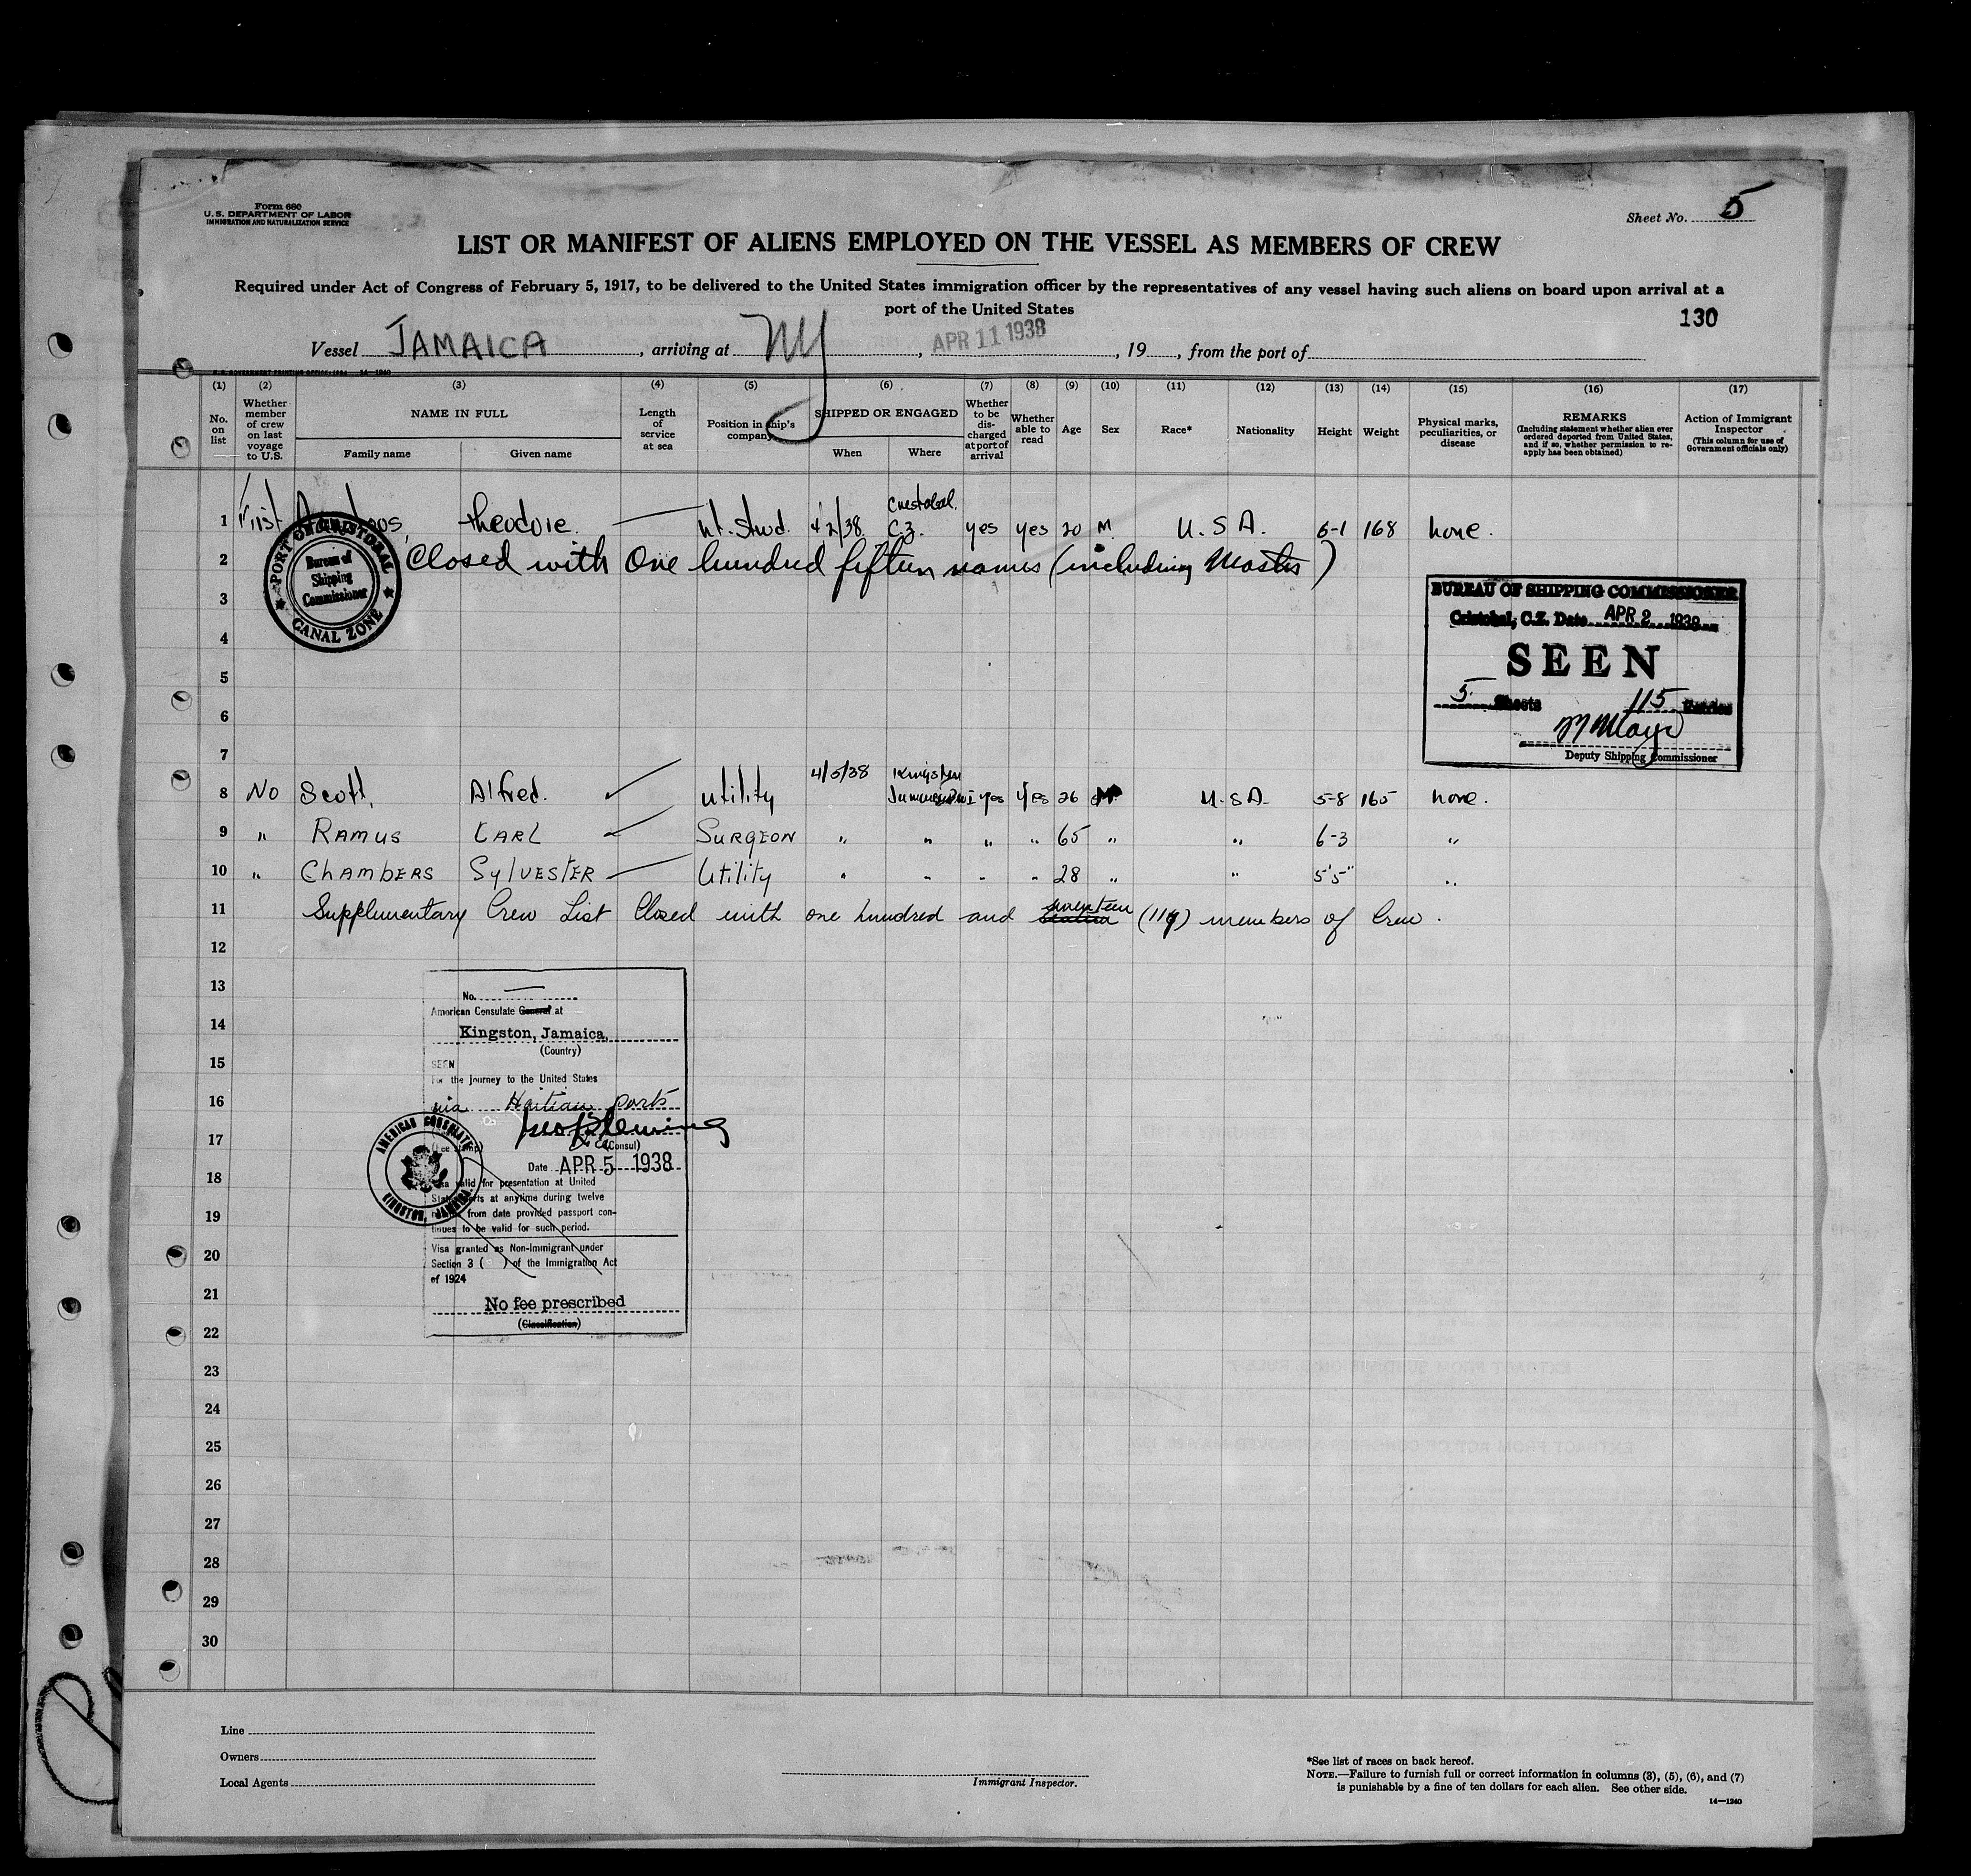 Form 680
U.S. DEPARTMENT OF LABOR
IMMIGRATION AND NATURALIZATION SERVICE
Sheet No. 5
LIST OR MANIFEST OF ALIENS EMPLOYED ON THE VESSEL AS MEMBERS OF CREW
Required under Act of Congress of February 5, 1917, to be delivered to the United States immigration officer by the representatives of any vessel having such aliens on board upon arrival at a
port of the United States
130
Vessel JAMAICA, arriving at NY, APR 11 1938, 19, from the port of
(1) (2) (3) (4) (5) (6) (7) (8) (9) (10) (11) (12) (13) (14) (15) (16) (17)
No. on list
Whether member of crew on last voyage to U.S.
NAME IN FULL
Family name Given name
Length of service at sea
Position in ship's company
SHIPPED OR ENGAGED
When Where
Whether to be discharged at port of arrival
Whether able to read
Age
Sex
Race*
Nationality
Height
Weight
Physical marks, peculiarities, or disease
REMARKS
(Including statement whether alien ever ordered deported from United States, and if so, whether permission to reapply has been obtained)
Action of Immigrant Inspector
(This column for use of Government officials only)
1 First Theodore. — Nt. Stwd. 4/2/38 Cristobal. C.Z. yes yes 20 M. U.S.A. 6-1 168 none.
2 Closed with One hundred fifteen names (including Master)
PORT OF CRISTOBAL
Bureau of
Shipping
Commissioner
CANAL ZONE
3
4
5
6
7
BUREAU OF SHIPPING COMMISSIONER
Cristobal, C.Z. Date APR 2 1938
SEEN
5 Sheets 115 Entries
Deputy Shipping Commissioner
8 No Scott, Alfred. utility 4/5/38 Kingston yes yes 26 M U.S.A. 5-8 165 none.
9 " RAMUS CARL SURGEON " " " " 65 " " 6-3 "
10 " CHAMBERS SYLVESTER Utility " " " " 28 " " 5'5" "
11 Supplementary Crew List Closed with one hundred and seventeen (117) members of Crew.
12
13
14
15
16
17
18
19
20
21
22
23
24
25
26
27
28
29
30
No.
American Consulate General at
Kingston, Jamaica,
(Country)
SEEN
For the journey to the United States
via Haitian ports
(Consul)
Date APR 5 1938
AMERICAN CONSULATE
KINGSTON, JAMAICA
valid for presentation at United
States ports at anytime during twelve
from date provided passport con-
tinues to be valid for such period.
Visa granted as Non-Immigrant under
Section 3 ( ) of the Immigration Act
of 1924
No fee prescribed
(Classification)
Line
Owners
Local Agents
Immigrant Inspector.
*See list of races on back hereof.
NOTE.—Failure to furnish full or correct information in columns (3), (5), (6), and (7)
is punishable by a fine of ten dollars for each alien. See other side.
14—1240